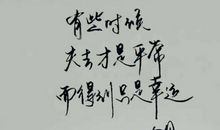 有些时候
失去才是平常
而得到只是幸运